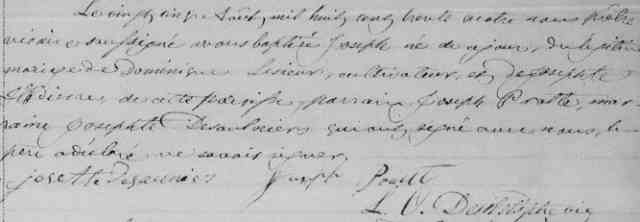 Le vingt cinq Août, mil huit cent trente quatre nous Prêtre
vicaire soussigné avons baptisé Joseph né de ce jour, du légitime
mariage de Dominique Lesieur, cultivateur, et de Josephte
de cette paroisse, parrain Joseph Pratte, mar
raine Josephte Desaulniers qui ont signé avec nous, le
père a déclaré ne savoir signer,
josette Desaunies Joseph
L. O. vic